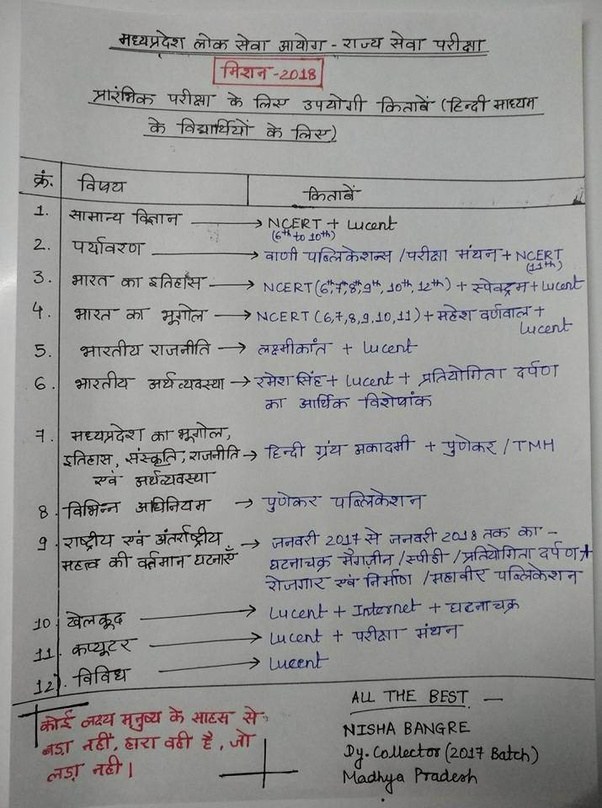 मध्यप्रदेश लोक सेवा आयोग - राज्य सेवा परीक्षा
मिशन-2018
प्रारंभिक परीक्षा के लिए उपयोगी किताबें (हिन्दी माध्यम
के विद्यार्थियों के लिए)
क्रं. विषय किताबें
1. सामान्य विज्ञान → NCERT + Lucent
(6th to 10th)
2. पर्यावरण → वाणी पब्लिकेशन्स / परीक्षा मंथन + NCERT
(11th)
3. भारत का इतिहास → NCERT (6th, 7th, 8th, 9th, 10th, 12th) + स्पेक्ट्रम + Lucent
4. भारत का भूगोल → NCERT (6,7,8,9,10,11) + महेश वर्णवाल +
Lucent
5. भारतीय राजनीति → लक्ष्मीकांत + Lucent
6. भारतीय अर्थव्यवस्था → रमेश सिंह + Lucent + प्रतियोगिता दर्पण
का आर्थिक विशेषांक
7. मध्यप्रदेश का भूगोल,
इतिहास, संस्कृति, राजनीति → हिन्दी ग्रंथ अकादमी + पुणेकर / TMH
एवं अर्थव्यवस्था
8. विभिन्न अधिनियम → पुणेकर पब्लिकेशन
9. राष्ट्रीय एवं अंतर्राष्ट्रीय → जनवरी 2017 से जनवरी 2018 तक का -
महत्व की वर्तमान घटनाएँ घटनाचक्र मैगज़ीन / स्पीडी / प्रतियोगिता दर्पण +
रोजगार एवं निर्माण / महावीर पब्लिकेशन
10. खेलकूद → Lucent + Internet + घटनाचक्र
11. कम्प्यूटर → Lucent + परीक्षा मंथन
12). विविध → Lucent
कोई लक्ष्य मनुष्य के साहस से
बड़ा नहीं, हारा वही है, जो
लड़ा नहीं।
ALL THE BEST —
NISHA BANGRE
Dy. Collector (2017 Batch)
Madhya Pradesh